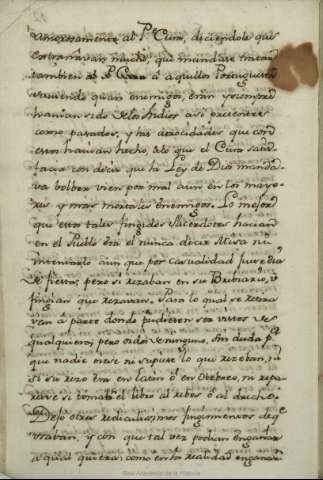 amorosamente al P.e Cura, diciendole que
estrañavan mucho, que mandase
tambien el P. Cura à aquellos Portugueses
saviendo quan enemigos, eran y siempre
havian sido de los Indios asi presentes
como pasados, y las atrocidades que con
estos havian hecho, à lo que el Cura satis-
facia con decir que la Ley de Dios manda-
va bolber vien por mal aun en los mayo-
res y mas mortales enemigos. Lo mejor
que estos tales fingidos Sacerdotes hacian
en el Pueblo era el nunca decir Misa ni
intentarlo aun que por casualidad fuese dia
de fiesta; pero si rezaban en su Brebiario, ò
fingian que rezavan. Para lo qual se retira
van à parte donde pudiesen ser vistos de
qualquiera; pero oidos de ninguno, sin duda p.a
que nadie oiese ni supiese lo que rezaban, ni
si su rezo era en latin ò en Ebreo, ni repa-
rase si tomaba el libro al rebes ò al dercho.
Destos otros rediculisimos fingimientos de q.e
usaban, y con que tal vez podian engañar
a qual quiera; como en la realidad engañaron
Real Academia de la Historia